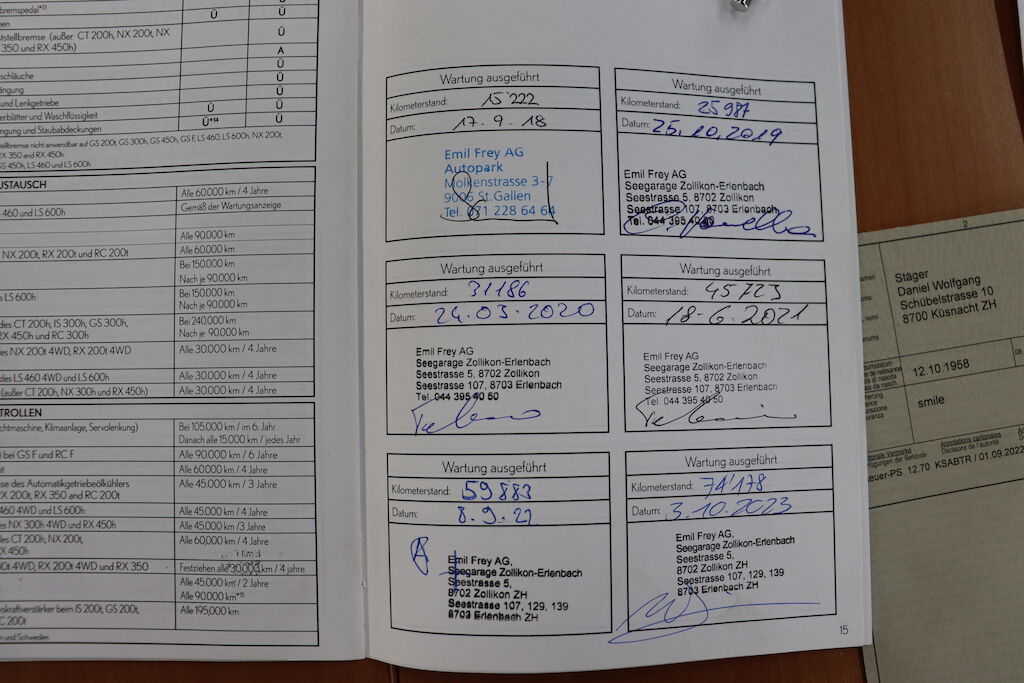 bremspedal*13
Ü
Ü
tstellbremse (außer CT 200h, NX 200t, NX
350 und RX 450h)
Ü
A
schläuche
Ü
Ü
und Lenkgetriebe
Ü
erblätter und Waschflüssigkeit
Ü
Ü
ngung und Staubabdeckungen
Ü*14
Ü
tellbremse nicht anwendbar auf GS 200t, GS 300h, GS 450h, GS F, LS 460, LS 600h, NX 200t,
RX 350 and RX 450h
GS 450h, LS 460 und LS 600h
USTAUSCH
Alle 60.000 km / 4 Jahre
460 und LS 600h
Gemäß der Wartungsanzeige
Alle 90.000 km
NX 200t, RX 200t und RC 200t
Alle 60.000 km
Bei 150.000 km
Nach je 90.000 km
LS 600h
Bei 150.000 km
Nach je 90.000 km
des CT 200h, IS 300h, GS 300h,
RX 450h and RC 300h
Bei 240.000 km
Nach je 90.000 km
des NX 200t 4WD, RX 200t 4WD
Alle 30.000 km / 4 Jahre
des LS 460 4WD und LS 600h
Alle 30.000 km / 4 Jahre
(außer CT 200h, NX 300h und RX 450h)
Alle 30.000 km / 4 Jahre
NTROLLEN
chtmaschine, Klimaanlage, Servolenkung)
Bei 105.000 km / im 6. Jahr
Danach alle 15.000 km / jedes Jahr
bei GS F und RC F
Alle 90.000 km / 6 Jahre
Alle 60.000 km / 4 Jahre
se des Automatikgetriebeölkühlers
RX 200t, RX 350 and RC 200t
Alle 45.000 km / 3 Jahre
460 4WD und LS 600h
Alle 45.000 km / 4 Jahre
es NX 300h 4WD und RX 450h
Alle 45.000 km /3 Jahre
des CT 200h, NX 200t,
RX 450h
Alle 60,000 km / 4 Jahre
00t 4WD, RX 200t 4WD und RX 350
Festziehen alle 30.000 km / 4 jahre
Alle 45.000 km / 2 Jahre
Alle 90.000 km*15
skraftverstärker beim IS 200t, GS 200t,
C 200t
Alle 195,000 km
n und Schweden
Wartung ausgeführt
Kilometerstand: 15'222
Datum: 17. 9 - 18
Emil Frey AG
Autopark
Molkenstrasse 3-7
9006 St.Gallen
Tel. 071 228 64 64
Wartung ausgeführt
Kilometerstand: 25987
Datum: 25.10.2019
Emil Frey AG
Seegarage Zollikon-Erlenbach
Seestrasse 5, 8702 Zollikon
Seestrasse 107, 8703 Erlenbach
Tel. 044 395 40 50
Wartung ausgeführt
Kilometerstand: 31186
Datum: 24.03.2020
Emil Frey AG
Seegarage Zollikon-Erlenbach
Seestrasse 5, 8702 Zollikon
Seestrasse 107, 8703 Erlenbach
Tel. 044 395 40 50
Wartung ausgeführt
Kilometerstand: 45723
Datum: 18-6.2021
Emil Frey AG
Seegarage Zollikon-Erlenbach
Seestrasse 5, 8702 Zollikon
Seestrasse 107, 8703 Erlenbach
Tel. 044 395 40 50
Wartung ausgeführt
Kilometerstand: 59883
Datum: 8.9.22
Emil Frey AG,
Seegarage Zollikon-Erlenbach
Seestrasse 5,
8702 Zollikon ZH
Seestrasse 107, 129, 139
8703 Erlenbach ZH
Wartung ausgeführt
Kilometerstand: 74'178
Datum: 3.10.2023
Emil Frey AG,
Seegarage Zollikon-Erlenbach
Seestrasse 5,
8702 Zollikon ZH
Seestrasse 107, 129, 139
8703 Erlenbach ZH
15
2
Stäger
Daniel Wolfgang
Schübelstrasse 10
8700 Küsnacht ZH
12.10.1958
smile
Annotations cantonales
Décisions de l'autorité
Steuer-PS 12.70 KSABTR / 01.09.2022